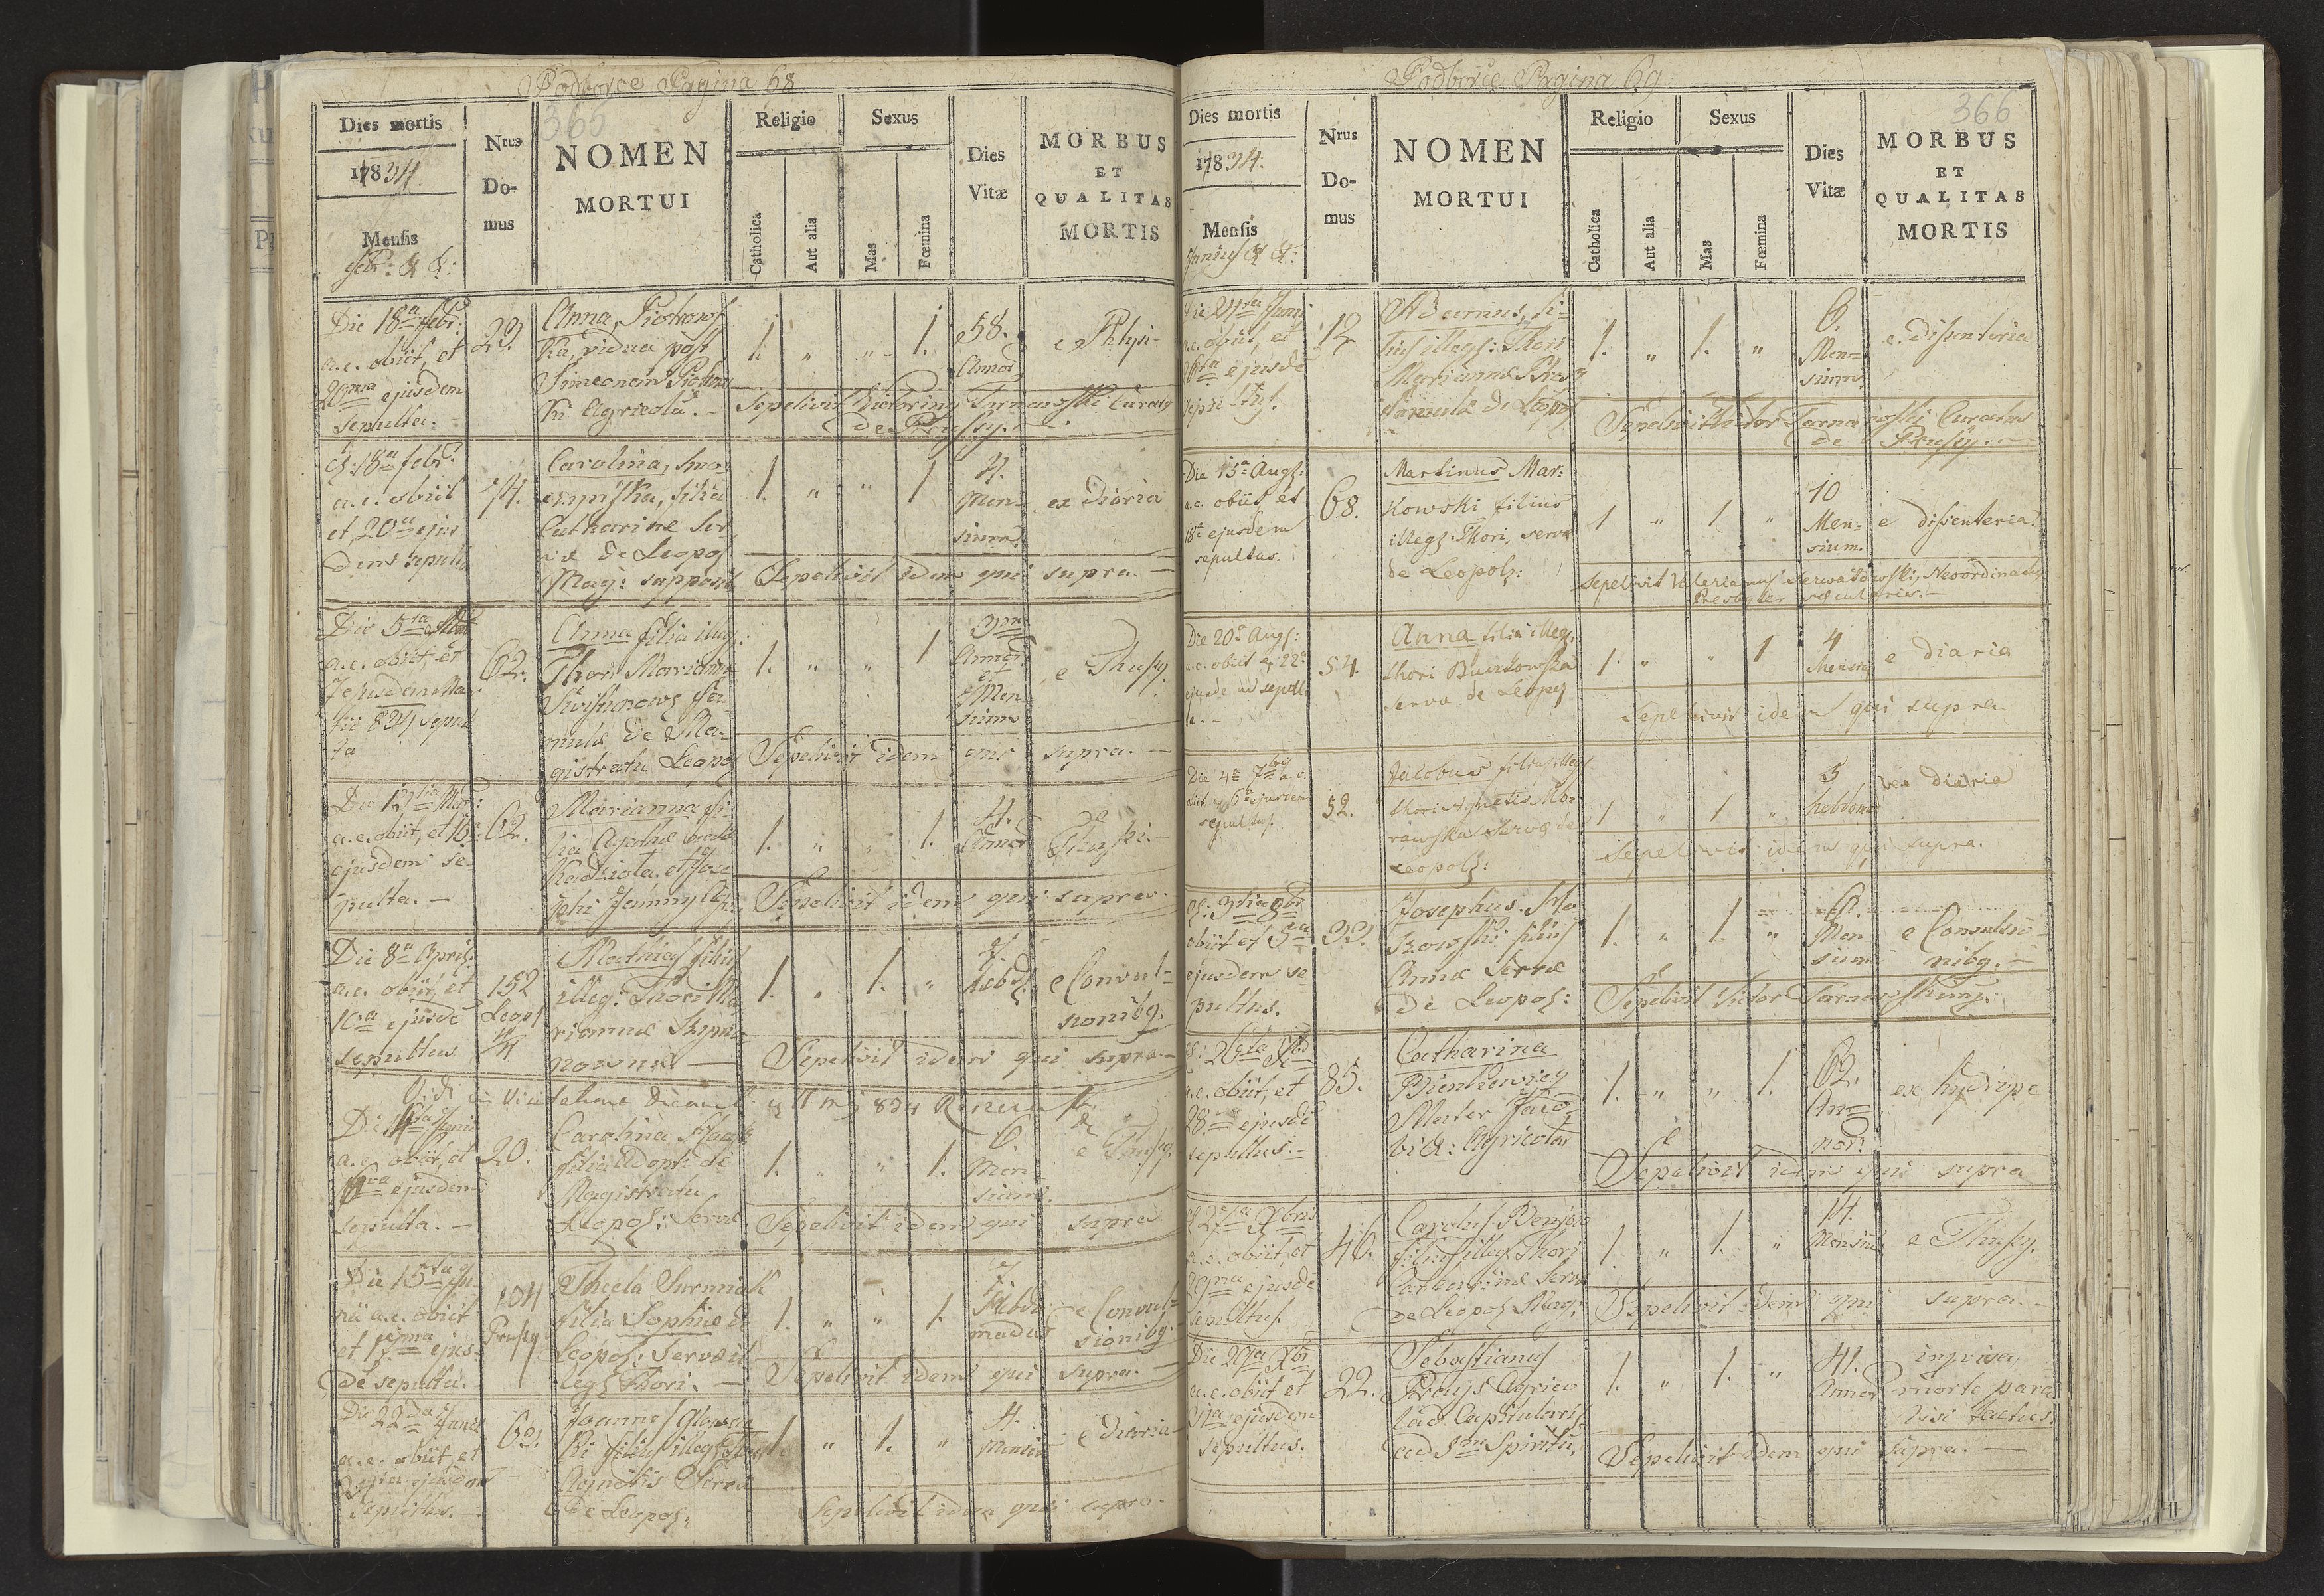 Podborce Pagina 68
365
Dies mortis
1834.
Mensis
febr: & &:
Nrus
Do-
mus
NOMEN
MORTUI
Religio
Catholica
Aut alia
Sexus
Mas
Fœmina
Dies
Vitæ
MORBUS
ET
QUALITAS
MORTIS
Die 18a febr:
a.c. obiit, et
20ma ejusdem
sepulta.
29.
Anna Piotrows
ka, vidua post
Simeonem Piotrows
ki Agricola. -
1. „ „ 1.
58.
Annor
e Phtysi-
Sepelivit Victorinus Tarnawski Curatus
de Prussy. -
18a febr:
a.c. obiit
et, 20a ejus
dem sepulta
74.
Carolina, Smo
filia
Catharinæ Ser
væ de Leopol
Mag: supposit
1. „ „ 1
4.
Men-
sium
ex diaria
Sepelivit idem qui supra. -
Die 5ta
a.c. obiit, et
7 ejusdem Ma
834 sepul
ta
62.
Anna filia illeg:
Thori Marianna
fa-
mulæ de Ma-
gistratu Leopol
1. „ „ 1
3um
Annor
et
Men
sium
e Thussy.
Sepelivit idem qui supra. -
a.c. obiit, et 16a
ejusdem se-
pulta. -
62.
Marianna fi-
lia Agathæ
et Jose
phi
1. „ „ 1.
4.
Annor
e
Thussi. -
Sepelivit idem qui supra. -
Die 8a April:
a.c. obiit, et
10a ejusde
sepultus
152
Leopol
¾
Mathias filius
illeg: Thori Ma
riannæ Szyma
nowna -
1. „ 1. „
7.
Hebd.
e Convul-
sionibq.
Sepelivit idem qui supra. -
Vidi in Visitatione Decanali
834
Die Junii
a.c. obiit, et
ejusdem
sepulta. -
20.
Carolina
filia Adopt: de
Magistratu
Leopol: Servæ
1. „ „ 1.
6.
Men
sium.
e Thussy.
Sepelivit idem qui supra
Die 15ta Ju-
nii a.c. obiit
et 17ma ejus-
de sepulta. -
104
Prussy
Thecla Surmiak
filia Sophiæ de
Leopol: Servæ il
leg: Thori. -
1. „ „ 1.
7.
Hebdo
madar
e Convul-
sionibq. -
Sepelivit idem qui supra. -
Die 22da Junii
a.c. obiit, et
ejusdem
sepultus. -
62.
Joannes Glowac
ki filius illeg: Thori
Agnetis Servæ
de Leopol:
1. „ 1. „
4.
Mensium
e diaria -
Sepelivit idem qui supra. -
Podborce Pagina 69
366
Dies mortis
1834.
Mensis
Junius & &:
Nrus
Do-
mus
NOMEN
MORTUI
Religio
Catholica
Aut alia
Sexus
Mas
Fœmina
Dies
Vitæ
MORBUS
ET
QUALITAS
MORTIS
Die 24ta Juni
a.c. obiit, et
26ta ejusde
sepultus.
12
Adamus, fi-
lius illeg: Thori
Mariannæ
Famulæ de Leopol
1. „ 1. „
6.
Men-
sium
e. Disenteria
Sepelivit Victor Tarnawski Curatus
de Prussy. -
Die 15a Aug:
a.c. obiit et
18a ejusdem
sepultus.
68.
Martinus Mar-
kowski filius
illeg: Thori, serva
de Leopol:
1 „ 1 „
10
Men-
sium.
e dissenteria
Sepelivit Valerianus Serwatowski, Neoordinatus
Presbyter sæcularis. -
Die 20a Aug:
a.c. obiit et 22a
ejusde m sepul
ta. -
54.
Anna filia illeg.
thori
serva de Leopol
1. „ „ 1
4
Mensiu
e diaria
Sepelivit idem qui supra.
Die 4a 7bris a.c.
obiit et 6a ejusdem
sepultus.
52.
Jacobus filius illeg
thori Agnetis Mo-
rawska serva de
Leopol:
1 „ 1 „
5
hebdoma
ex diaria
Sepelivit idem qui supra.
D: 3tia 8bris
obiit et 5ta
ejusdem se-
pultus.
33.
Josephus
kowski filius
Annæ Servæ
de Leopol:
1. „ 1. „
Men
sium
e Convulsio-
nibq. -
Sepelivit Victor Tarnawski
D: 26ta
a.c. obiit, et
28va ejusde
sepultus. -
85.
Catharina
Mater Jaco
bi a: Agricolæ
1. „ „ 1.
62.
An-
nor.
ex hydrope
Sepelivit idem qui supra
D 27ma Xbris
a.c. obiit, et
29na ejusde
sepultus
46.
Carolus Benja
filius illeg Thori
Catharinæ Serva
de Leopol Mag:
1. „ 1. „
14.
Mensiu
e Thussy.
Sepelivit idem qui supra. -
Die 29a Xbr
a.c. obiit et
31a ejusdem
sepultus.
22.
Sebastianus
Agrico
la Capitularis
ad Sm Spiritu,
1. „ 1. „
41.
Annor
improvisa
morte para
lisi tactus.
Sepelivit idem qui supra. -